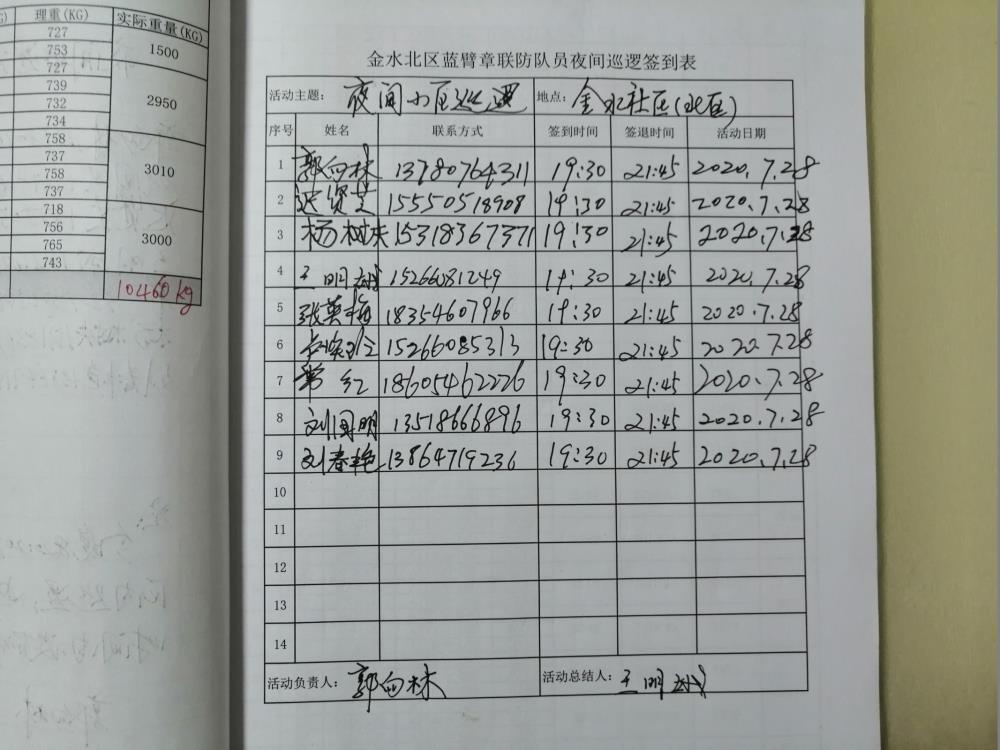 理重(KG) 实际重量(KG)
727
753
727
1500
739
732
734
2950
758
737
758
737
3010
718
756
765
743
3000
10460 kg
金水北区蓝臂章联防队员夜间巡逻签到表
活动主题: 夜间小区巡逻 地点: 金水社区(北区)
序号 姓名 联系方式 签到时间 签退时间 活动日期
1 郭向林 13780764311 19:30 21:45 2020.7.28
2 15550518908 19:30 21:45 2020.7.28
3 杨树夫 15318367371 19:30 21:45 2020.7.28
4 王明 15266081249 19:30 21:45 2020.7.28
5 张英梅 18354607966 19:30 21:45 2020.7.28
6 15266085313 19:30 21:45 2020.7.28
7 常红 18605462226 19:30 21:45 2020.7.28
8 刘国明 13518666896 19:30 21:45 2020.7.28
9 刘春艳 13864719236 19:30 21:45 2020.7.28
10
11
12
13
14
活动负责人: 郭向林 活动总结人: 王明